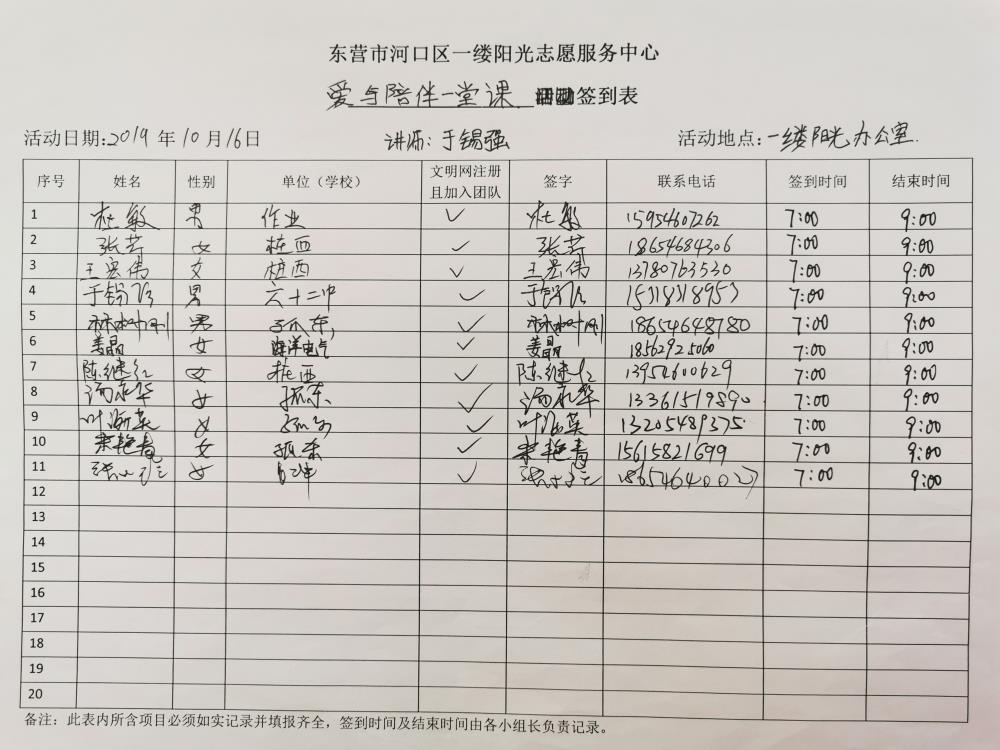 东营市河口区一缕阳光志愿服务中心
爱与陪伴一堂课 活动签到表
活动日期:2019年10月16日 讲师:于锡强 活动地点:一缕阳光办公室.
序号 姓名 性别 单位（学校） 文明网注册且加入团队 签字 联系电话 签到时间 结束时间
1 杜敏 男 作业 ✓ 杜敏 15954607262 7:00 9:00
2 张芹 女 桩西 ✓ 张芹 18654684306 7:00 9:00
3 王宏伟 女 桩西 ✓ 王宏伟 13780763530 7:00 9:00
4 于锡 男 六十二中 ✓ 于锡 15318318953 7:00 9:00
5 林 男 孤东 ✓ 林 18654648780 7:00 9:00
6 姜晶 女 海洋电气 ✓ 姜晶 18562925060 7:00 9:00
7 陈继红 女 桩西 ✓ 陈继红 13954600629 7:00 9:00
8 汤永华 女 孤东 ✓ 汤永华 13361519890 7:00 9:00
9 叶海英 女 孤东 ✓ 叶海英 13205489375 7:00 9:00
10 宋艳青 女 孤东 ✓ 宋艳青 15615821699 7:00 9:00
11 张 女 ✓ 张 7:00 9:00
12
13
14
15
16
17
18
19
20
备注：此表内所含项目必须如实记录并填报齐全，签到时间及结束时间由各小组长负责记录。